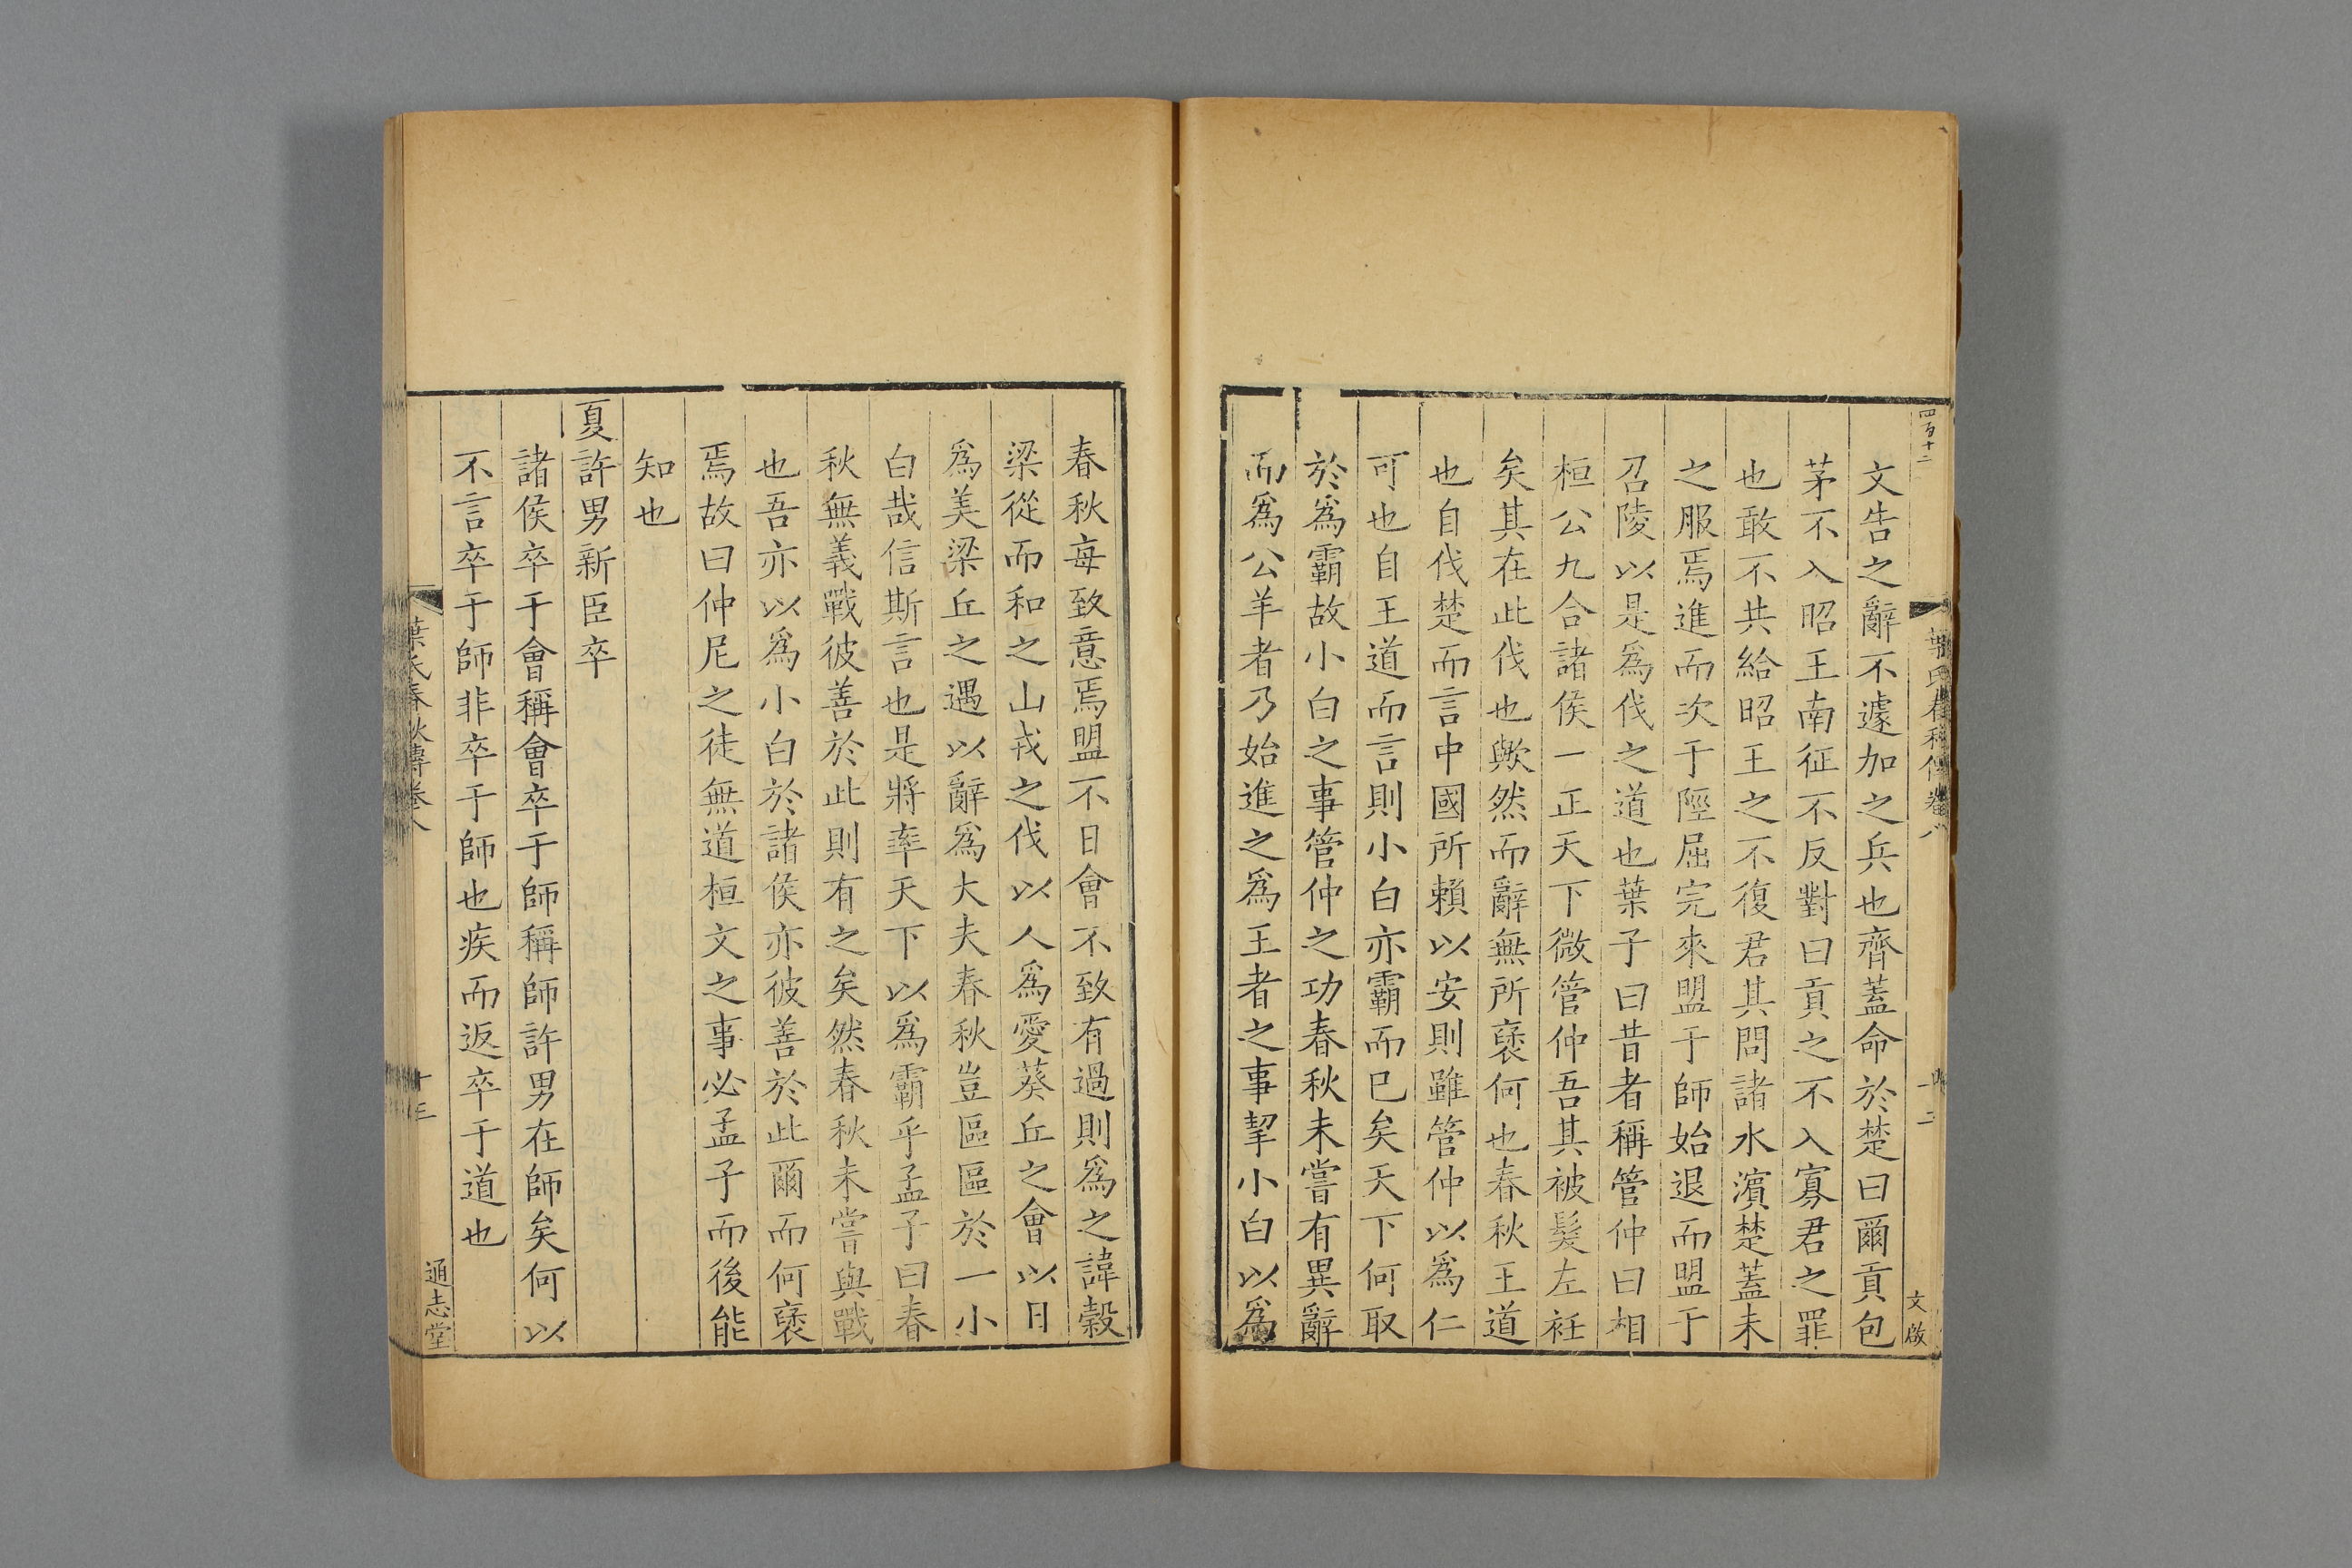 四百十二
葉氏春秋傳卷八
文啟
文告之辭不遽加之兵也齊蓋命於楚曰爾貢包
茅不入昭王南征不反對曰貢之不入寡君之罪
也敢不共給昭王之不復君其問諸水濱楚蓋未
之服焉進而次于陘屈完來盟于師始退而盟于
召陵以是爲伐之道也葉子曰昔者稱管仲曰相
桓公九合諸侯一正天下微管仲吾其被髮左衽
矣其在此伐也歟然而辭無所襃何也春秋王道
也自伐楚而言中國所賴以安則雖管仲以爲仁
可也自王道而言則小白亦霸而已矣天下何取
於爲霸故小白之事管仲之功春秋未嘗有異辭
而爲公羊者乃始進之爲王者之事挈小白以爲
春秋每致意焉盟不日會不致有過則爲之諱穀
梁從而和之山戎之伐以人爲愛葵丘之會以日
爲美梁丘之遇以辭爲大夫春秋豈區區於一小
白哉信斯言也是將率天下以爲霸乎孟子曰春
秋無義戰彼善於此則有之矣然春秋未嘗與戰
也吾亦以爲小白於諸侯亦彼善於此爾而何襃
焉故曰仲尼之徒無道桓文之事必孟子而後能
知也
夏許男新臣卒
諸侯卒于會稱會卒于師稱師許男在師矣何以
不言卒于師非卒于師也疾而返卒于道也
葉氏春秋傳卷八
十三
通志堂